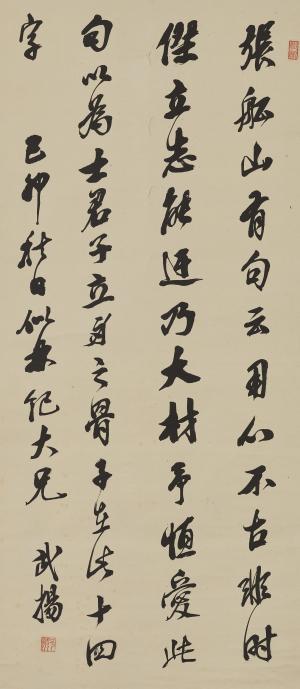 張船山有句云用心不古非時
傑立志能迂乃大材予恆愛此
句以為士君子立身之骨子在此十四
字
己卯秋日似林紀大兄
武揚